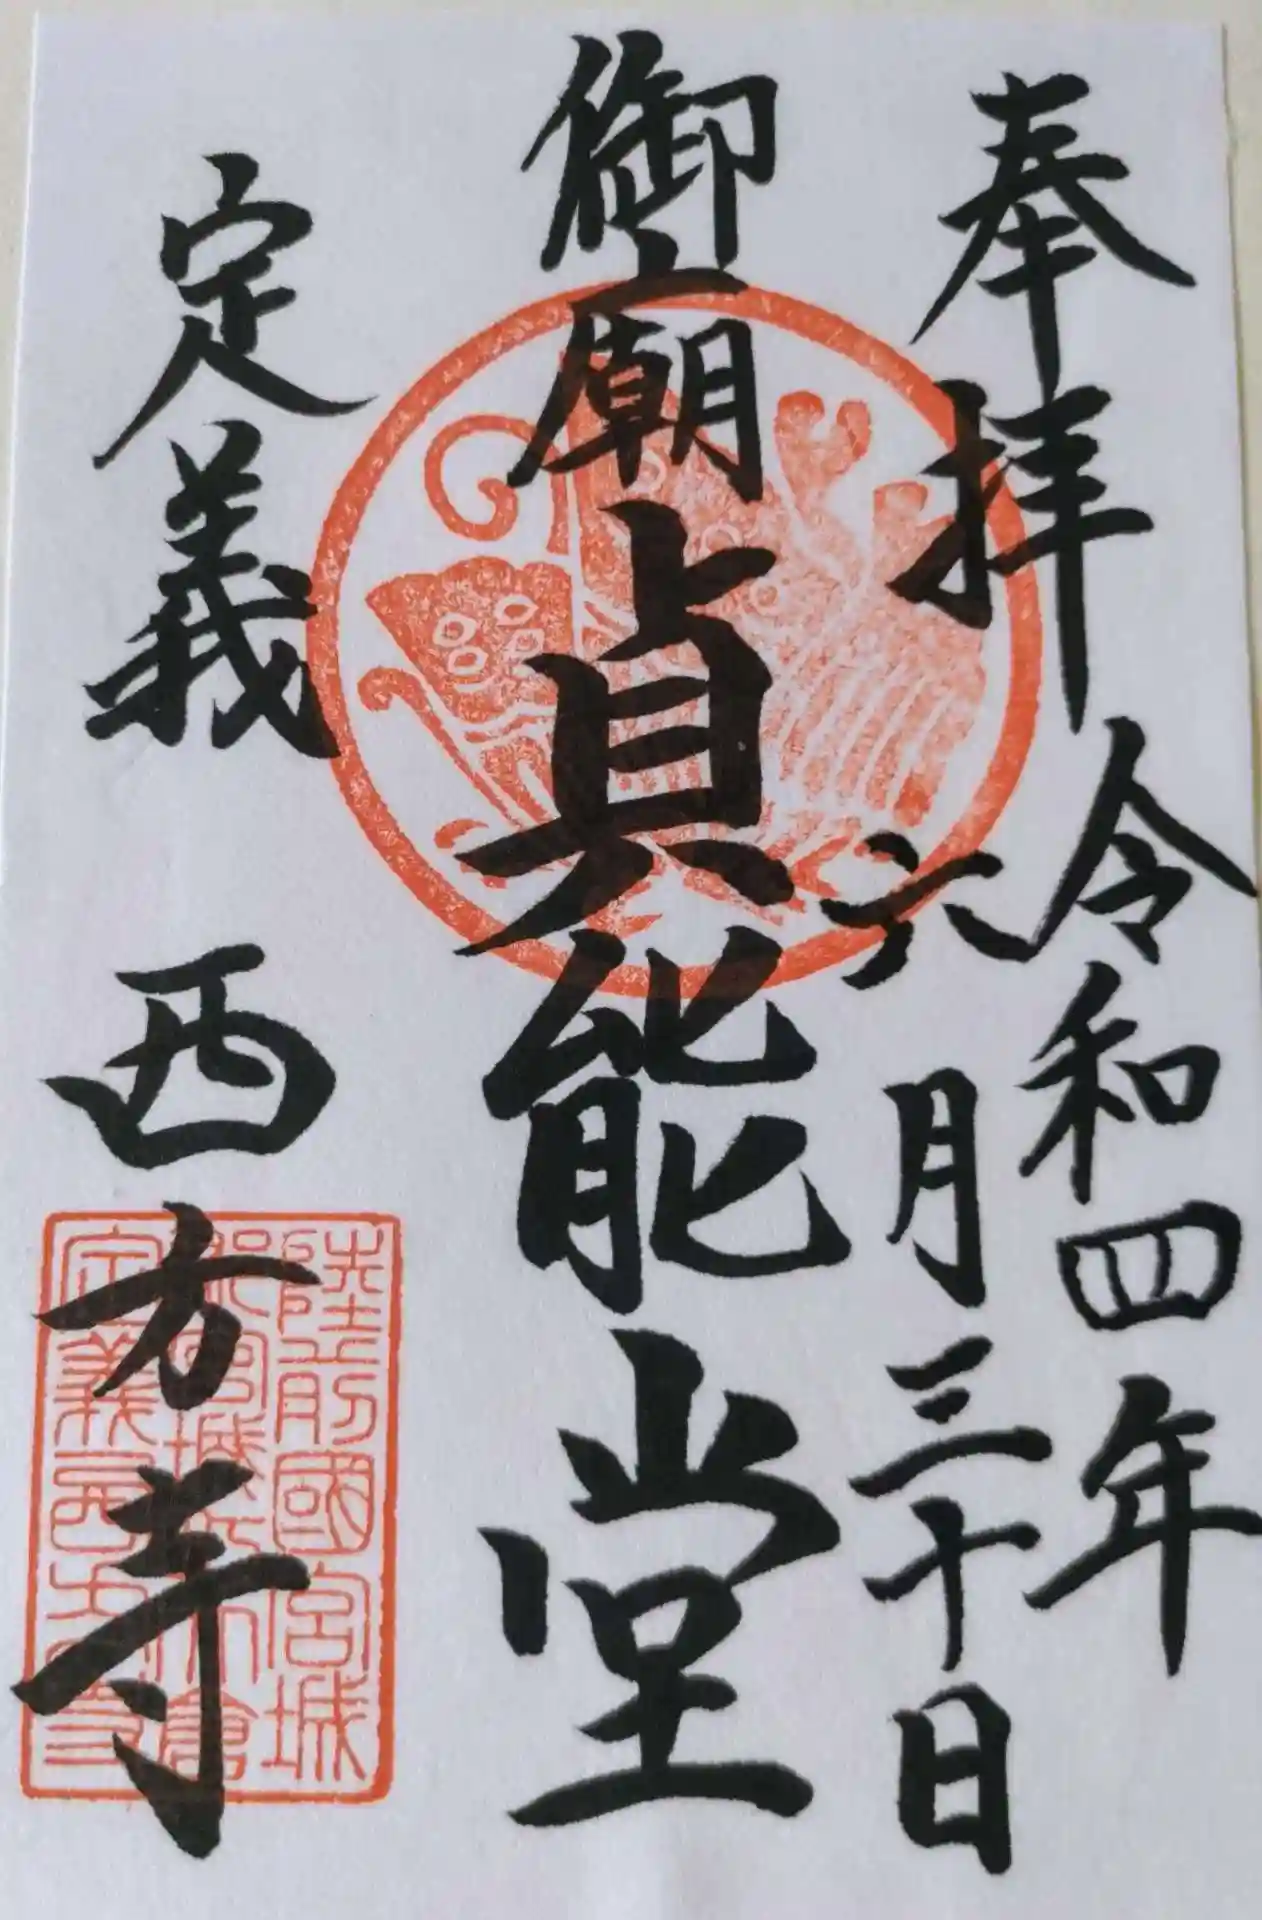 奉拝
令和四年
六月三十日
御廟貞能堂
定義
西方寺
陸前國宮城
郡宮城町大倉
定義西方寺